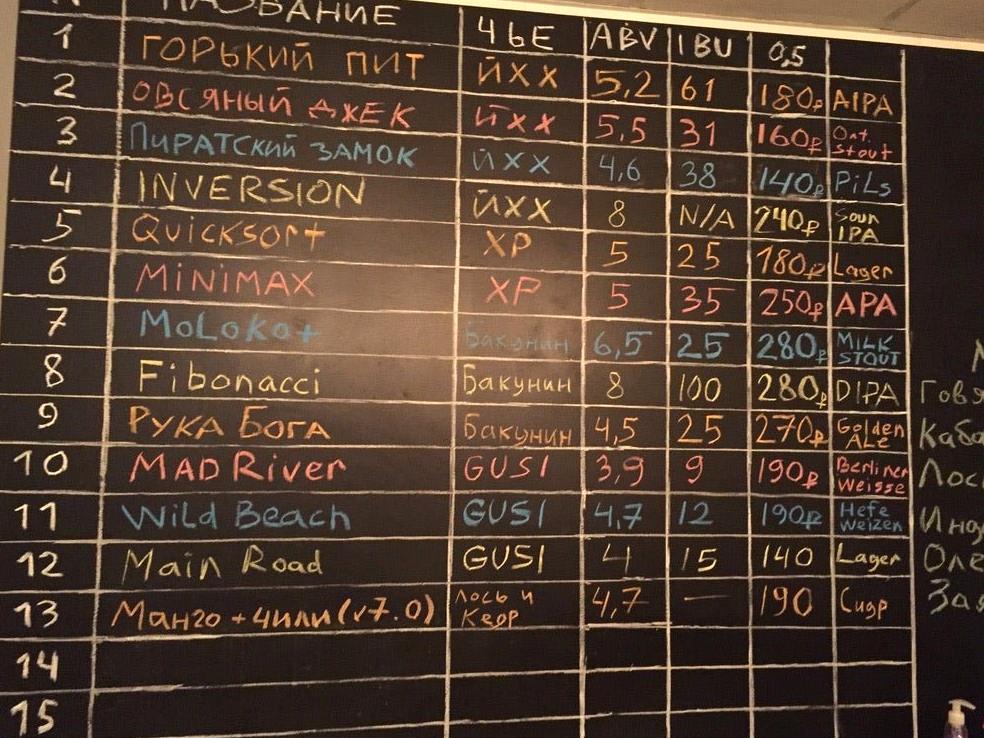 НАЗВАНИЕ ЧЬЕ ABV IBU 0,5
1 ГОРЬКИЙ ПИТ ЙХХ 5,2 61 180₽ AIPA
2 ОВСЯНЫЙ ДЖЕК ЙХХ 5,5 31 160₽ Oat. Stout
3 ПИРАТСКИЙ ЗАМОК ЙХХ 4,6 38 140₽ PiLs
4 INVERSION ЙХХ 8 N/A 240₽ Sour IPA
5 Quicksort XP 5 25 180₽ Lager
6 MiNiMAX XP 5 35 250₽ APA
7 MoLoko+ Бакунин 6,5 25 280₽ MILK STOUT
8 Fibonacci Бакунин 8 100 280₽ DIPA
9 РУКА БОГА Бакунин 4,5 25 270₽ Golden ALE
10 MAD River GUSI 3,9 9 190₽ Berliner Weisse
11 Wild Beach GUSI 4,7 12 190₽ Hefe Weizen
12 Main Road GUSI 4 15 140 Lager
13 Манго + чили (v7.0) Лось и Кедр 4,7 — 190 Сидр
14
15